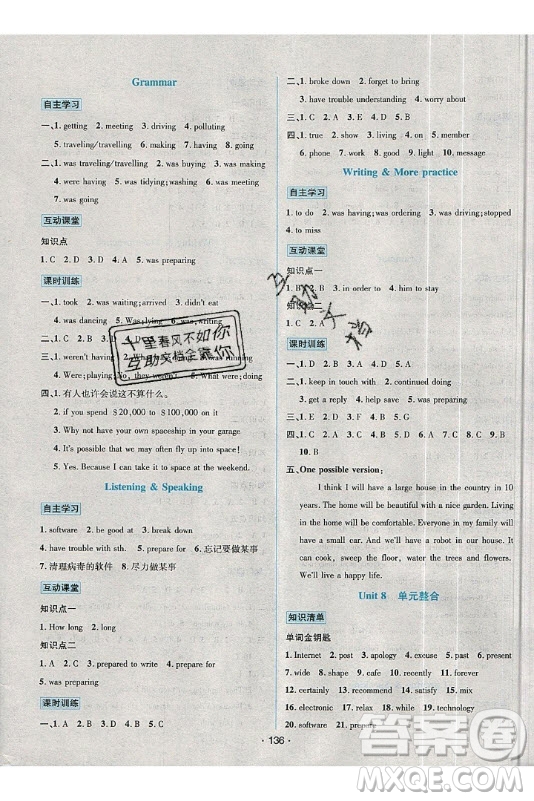 Grammar
自主学习
一、1. getting 2. meeting 3. driving 4. polluting
5. traveling/travelling 6. making 7. having 8. going
二、1. was traveling/travelling 2. was buying 3. was making
4. were having 5. was tidying;washing 6. were having
7. was going
互动课堂
知识点
1. C 2. D 3. D 4. A 5. was preparing
课时训练
一、1. took 2. was waiting;arrived
4. was dancing
4. Were;doing
四、1. 有人也许会说这不算什么。
2. if you spend $20,000 to $100,000 on it
3. Why not have your own spaceship in your garage
4. It's possible that we may often fly up into space!
5. Yes. Because I can take it to space at the weekend.
Listening & Speaking
自主学习
1. software 2. be good at 3. break down
4. have trouble with sth. 5. prepare for 6. 忘记要做某事
7. 清理病毒的软件 8. 尽力做某事
互动课堂
知识点一
1. How long 2. long
知识点二
1. C 2. A 3. prepared to write 4. prepare for
5. was preparing
课时训练
一、1. A 2. B 3. B 4. A 5. C
二、1. broke down 2. forget to bring
3. have trouble understanding 4. worry about
三、1. D 2. C 3. A 4. E 5. B
四、1. true 2. show 3. living 4. on 5. member
6. phone 7. work 8. good 9. light 10. message
Writing & More practice
自主学习
1. to do 2. was having;was ordering 3. was driving;stopped
4. to miss
互动课堂
知识点一
1. B 2. B 3. in order to 4. in order to
知识点二
1. C 2. A
课时训练
一、1. D
二、1. keep in touch with 2. continued doing
3. get a reply 4. help save 5. having dinner
三、1. C 2. B 3. C 4. E 5. A
四、1. B 2. A 3. C 4. A 5. A 6. C 7. B 8. C 9. C
10. B
五、One possible version:
I think I will have a large house in the country in 10
years. The house will have a nice garden. Living
in the home will be comfortable. Everyone in my family will
have a smart phone. And we will have a robot in our house. It
can cook, sweep the floor, water the trees and flowers.
We'll live a happy life.
Unit 8 单元整合
知识清单
单词金钥匙
1. Internet 2. past 3. apology 4. excuse 5. past 6. present
7. wide 8. shape 9. cafe 10. recently 11. forever
12. certainly 13. recommend 14. satisfy 15. intend
16. electronic 17. relax 18. activity 19. mostly
20. software 21. prepare
十里春风不如你
互助文档全靠你
互助文档
答案圈
MXQE.COM
· 136 ·